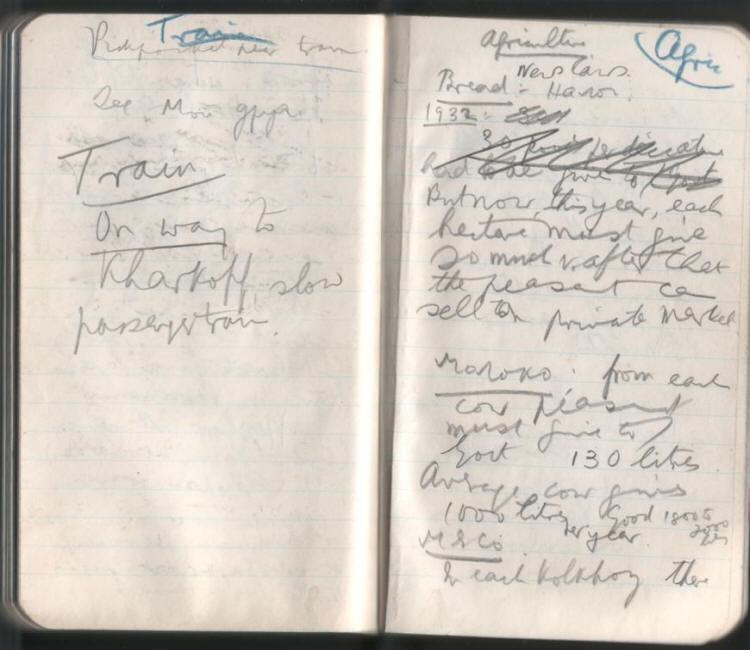 Train
Pickpocket near train
See
Train
On way to
Kharkoff, slow
passenger train.
Agriculture
Agric
New Laws.
Bread:
1932:
30
had to give to
But now, this year, each
hectare must give
so much & after that
the peasant can
sell on private market
Moloko: from each
cow peasant
must give to
Govt 130 litres
Average cow gives
1000 litres Good 1800 to
per year. 2000
In each Kolkhoz there